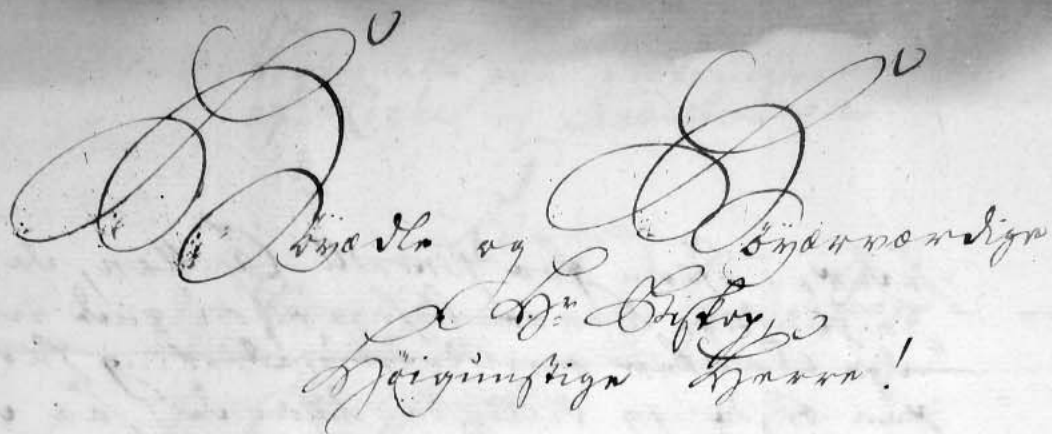 Höyædle og Höyærværdige
Hr Biskop,
Höigunstige Herre!